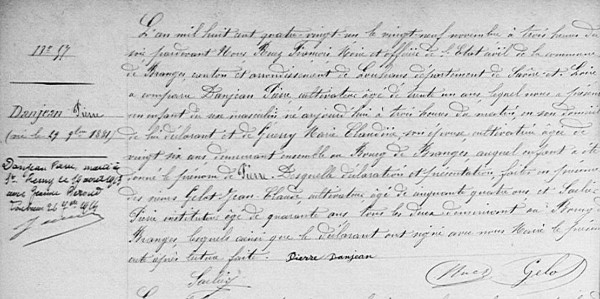 N° 97
Danjean Pierre
(né le 29 9bre 1881)
Danjean Pierre marié à
St Remy le
L'an mil huit cent quatre-vingt-un le vingt neuf novembre à trois heures du
soir pardevant Nous Remy François, Maire et officier de l'Etat civil de la commune
de Branges, canton et arrondissement de Louhans département de Saône-et-Loire
a comparu Danjean Pierre, cultivateur âgé de trente un ans, lequel nous a présenté
un enfant du sexe masculin né aujourd'hui à trois heures du matin, en son domicile
de lui déclarant et de Guerry Marie Claudine, son épouse, cultivatrice âgée de
vingt six ans demeurant ensemble au Bourg de Branges, auquel enfant a été
donné le prénom de Pierre. Lesquelles déclaration et présentation faites en présence
des sieurs Gelot Jean Claude cultivateur âgé de cinquante quatre ans et
Pierre instituteur âgé de quarante ans, tous les deux demeurant au Bourg de
Branges, lesquels ainsi que le déclarant ont signé avec nous Maire le présent
acte après lecture faite. Pierre Danjean
Gelo